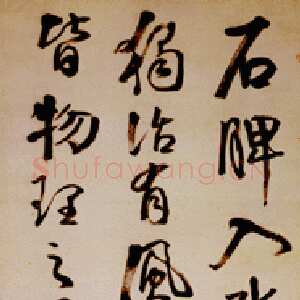 石脾入
獨活有風
皆物理之
Shufawang.CN